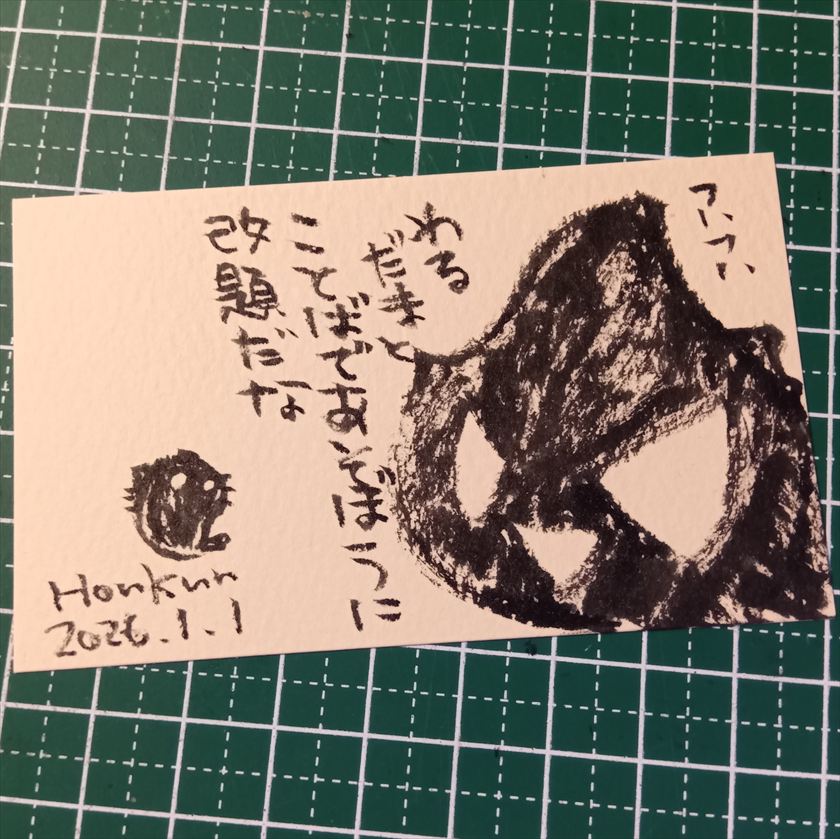 わる
だまと
ことばであそぼうに
改題だな
Honkun
2026.1.1